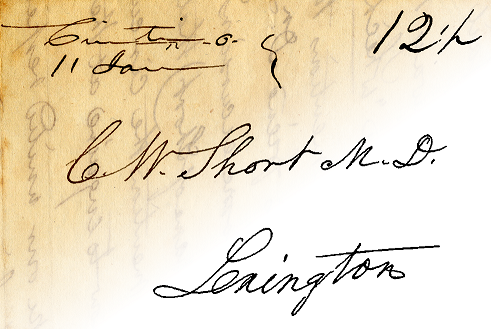 Cincin. O. 12½
11 Jan
C. W. Short M. D.
Lexington